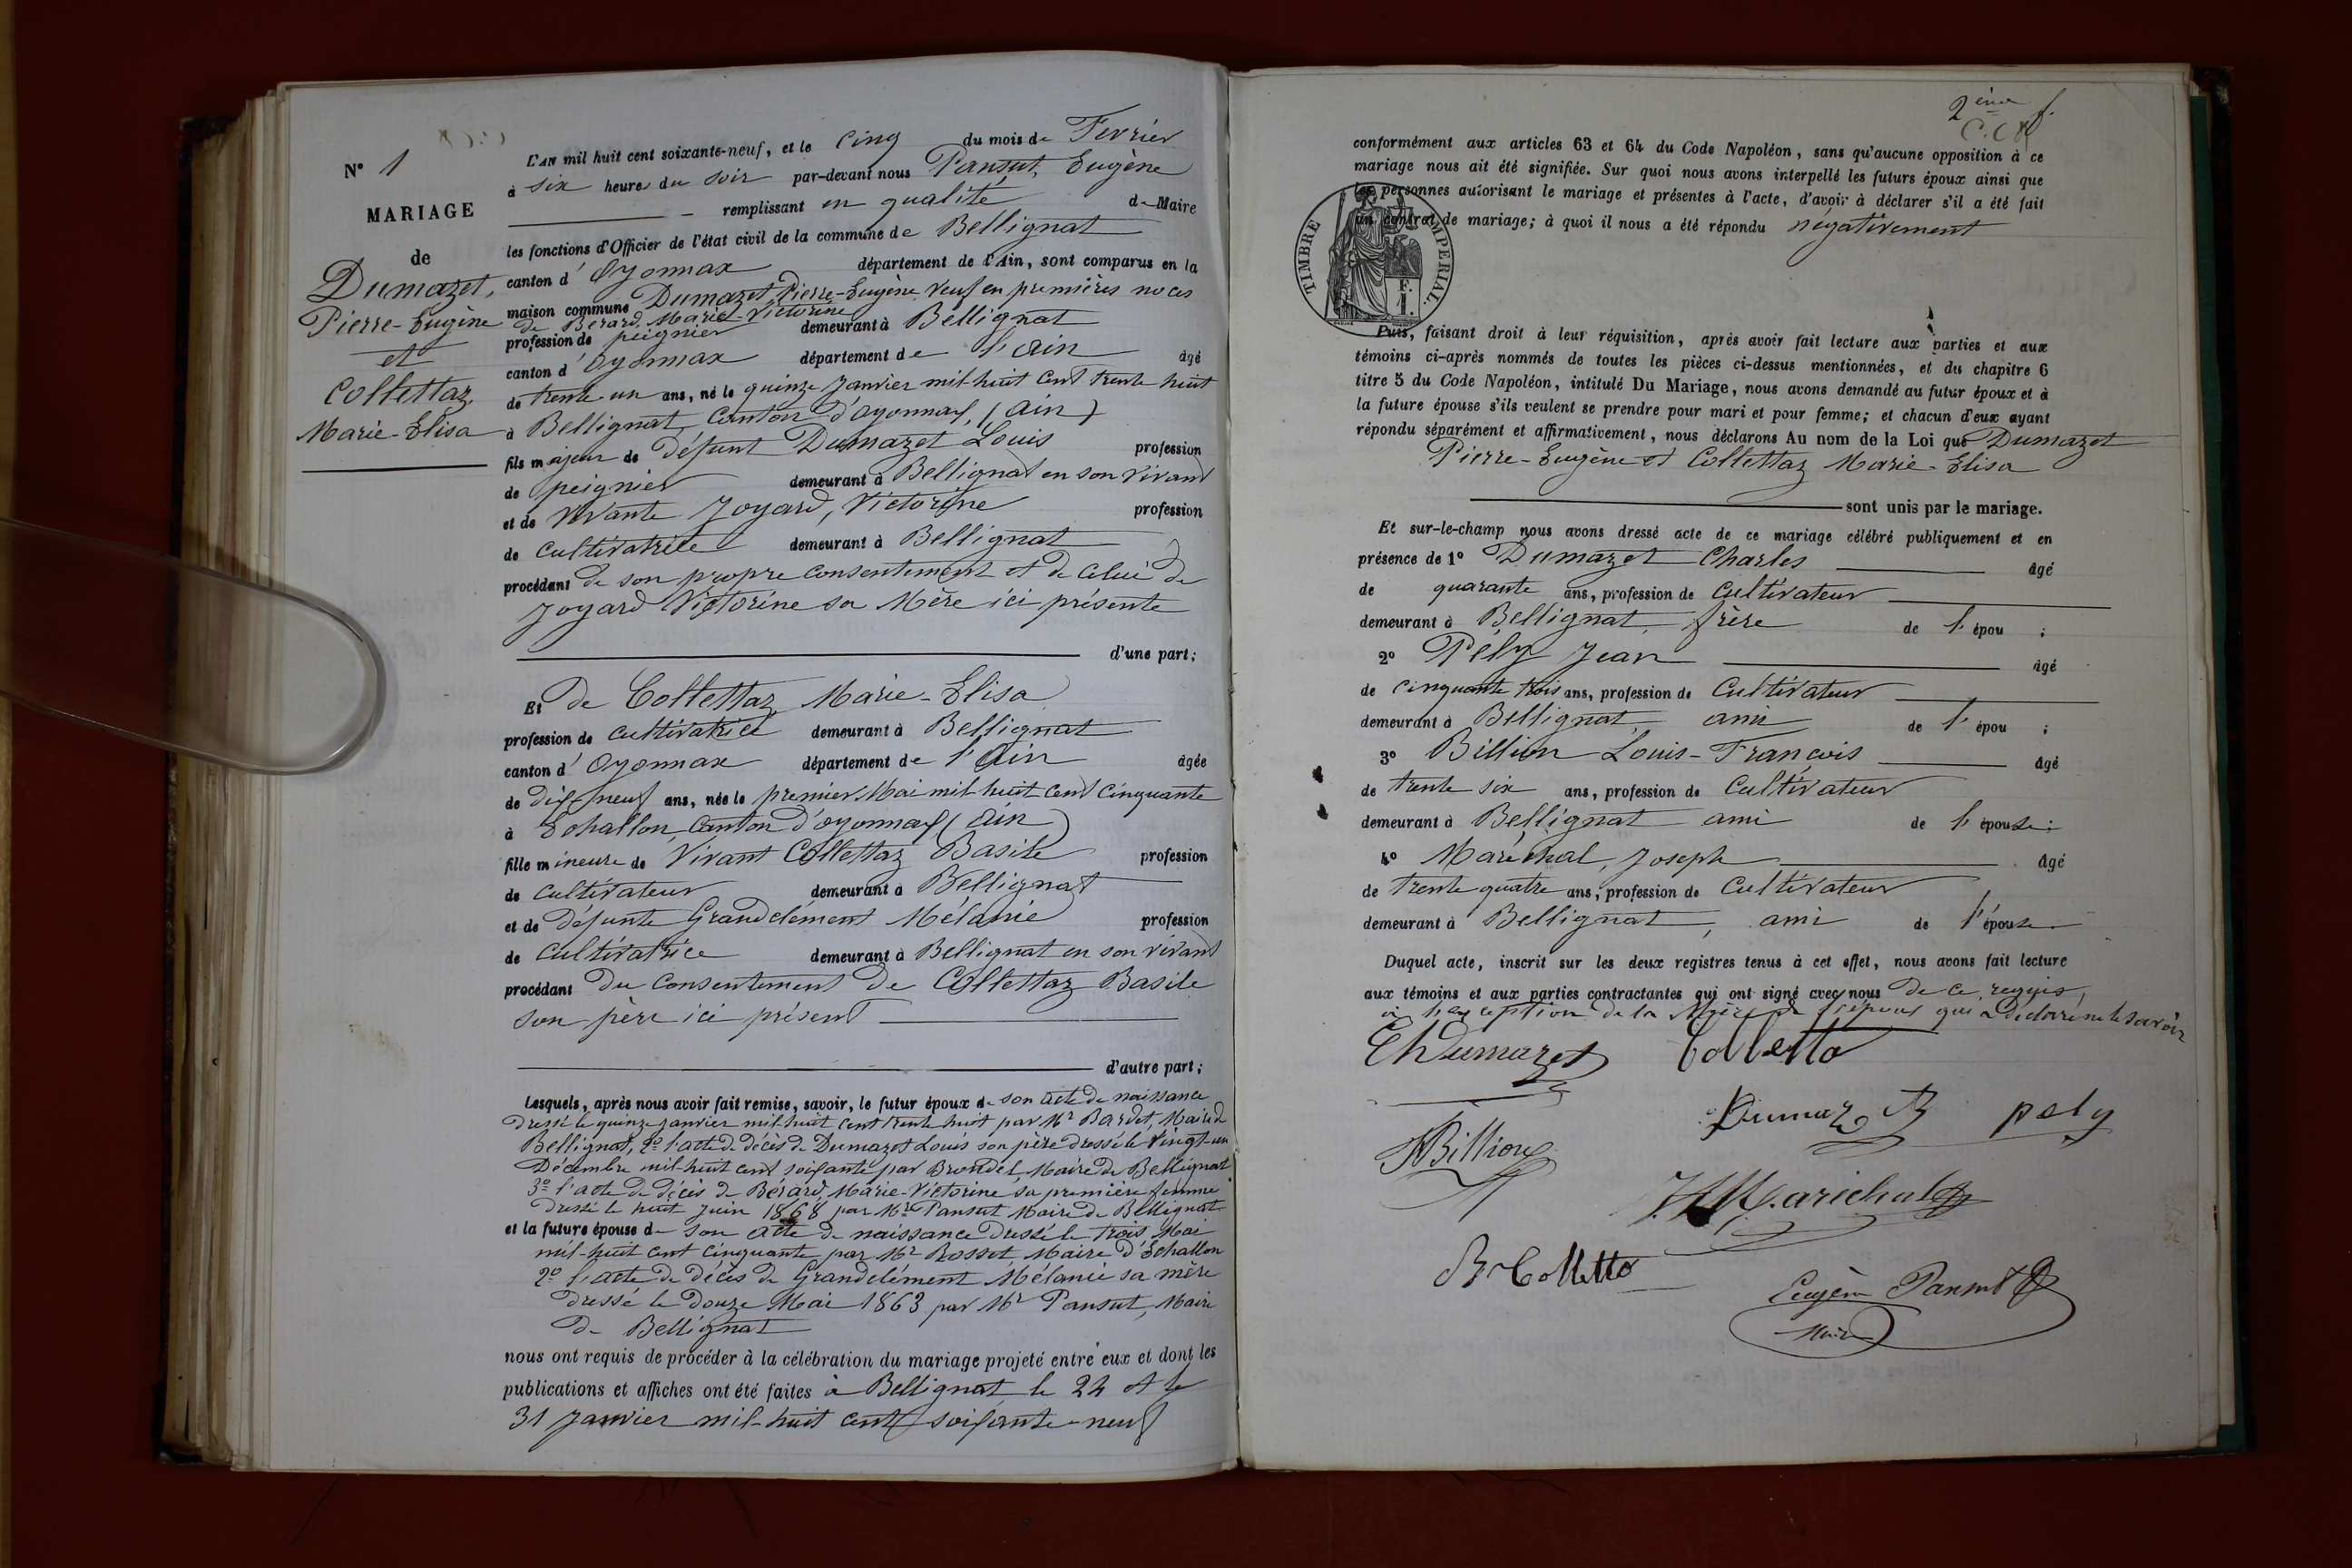 N° 1
MARIAGE
de
Dumazet,
Pierre-Eugène
et
Collettaz,
Marie-Elisa
L'AN mil huit cent soixante-neuf, et le cinq du mois de Fevrier
à six heures du soir par-devant nous Pansut, Eugène
remplissant en qualité de Maire
les fonctions d'Officier de l'état civil de la commune de Bellignat
canton d'Oyonnax département de l'Ain, sont comparus en la
maison commune Dumazet, Pierre-Eugène, veuf en premières noces
de Bérard, Marie-Victorine
profession de peignier demeurant à Bellignat
canton d'Oyonnax département de l'Ain âgé
de trente un ans, né le quinze Janvier mil-huit cent trente huit
à Bellignat, Canton d'Oyonnax, (Ain)
fils majeur de défunt Dumazet Louis profession
de peignier demeurant à Bellignat en son vivant
et de vivante Joyard, Victorine profession
de cultivatrice demeurant à Bellignat
procédant de son propre consentement et de celui de
Joyard Victorine sa Mère ici présente
d'une part;
Et de Collettaz Marie-Elisa
profession de cultivatrice demeurant à Bellignat
canton d'Oyonnax département de l'Ain âgée
de dix-neuf ans, née le premier Mai mil-huit cent cinquante
à Echallon, canton d'Oyonnax (Ain)
fille mineure de vivant Collettaz Basile profession
de cultivateur demeurant à Bellignat
et de défunte Grandclément Mélanie profession
de cultivatrice demeurant à Bellignat en son vivant
procédant du consentement de Collettaz Basile
son père ici présent
d'autre part;
Lesquels, après nous avoir fait remise, savoir, le futur époux de son acte de naissance
dressé le quinze janvier mil-huit cent trente huit par Mr Bardet, Maire de
Bellignat, 2° l'acte de décès de Dumazet Louis son père dressé le vingt-un
Décembre mil-huit cent soixante par Brondel, Maire de Bellignat
3° l'acte de décès de Bérard, Marie-Victorine sa première femme
dressé le huit Juin 1868 par Mr Pansut Maire de Bellignat
et la future épouse de son acte de naissance dressé le trois Mai
mil-huit cent cinquante par Mr Rosset Maire d'Echallon
2° l'acte de décès de Grandclément Mélanie sa mère
dressé le douze Mai 1863 par Mr Pansut, Maire
de Bellignat
nous ont requis de procéder à la célébration du mariage projeté entre eux et dont les
publications et affiches ont été faites à Bellignat le 24 et le
31 Janvier mil-huit cent soixante-neuf
2ème f.
conformément aux articles 63 et 64 du Code Napoléon, sans qu'aucune opposition à ce
mariage nous ait été signifiée. Sur quoi nous avons interpellé les futurs époux ainsi que
les personnes autorisant le mariage et présentes à l'acte, d'avoir à déclarer s'il a été fait
un contrat de mariage; à quoi il nous a été répondu négativement
TIMBRE IMPERIAL.
F.
1.
Puis, faisant droit à leur réquisition, après avoir fait lecture aux parties et aux
témoins ci-après nommés de toutes les pièces ci-dessus mentionnées, et du chapitre 6
titre 5 du Code Napoléon, intitulé Du Mariage, nous avons demandé au futur époux et à
la future épouse s'ils veulent se prendre pour mari et pour femme; et chacun d'eux ayant
répondu séparément et affirmativement, nous déclarons Au nom de la Loi que Dumazet
Pierre-Eugène et Collettaz Marie-Elisa
sont unis par le mariage.
Et sur-le-champ nous avons dressé acte de ce mariage célébré publiquement et en
présence de 1° Dumazet Charles âgé
de quarante ans, profession de cultivateur
demeurant à Bellignat, frère de l'épou ;
2° Pély Jean âgé
de cinquante trois ans, profession de cultivateur
demeurant à Bellignat, ami de l'épou ;
3° Billion Louis-François âgé
de trente six ans, profession de cultivateur
demeurant à Bellignat ami de l'épouse;
4° Maréchal, Joseph âgé
de trente quatre ans, profession de cultivateur
demeurant à Bellignat, ami de l'épouse.
Duquel acte, inscrit sur les deux registres tenus à cet effet, nous avons fait lecture
aux témoins et aux parties contractantes qui ont signé avec nous de ce requis,
à l'exception de la Mère de l'épous qui a déclaré ne le savoir
Ch Dumazet Colletta
Dumazet pely
Billion
J Marechal
B Colletta
Eugène Pansut
Maire